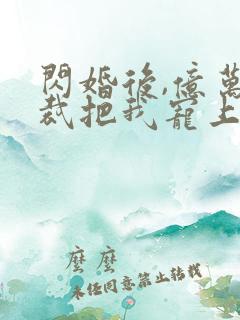 閃婚後,億萬
裁把我寵上
麼麼
未經同意禁止轉載